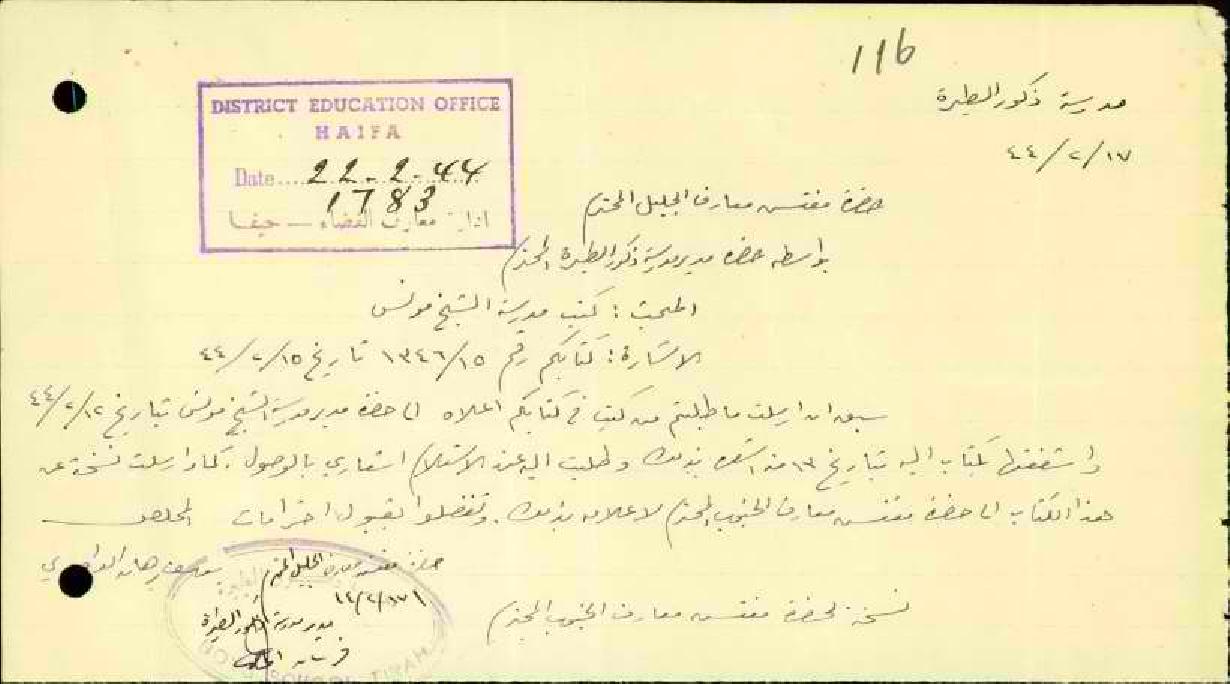 116
مدرسة ذكور الطيرة
١٧/٢/٤٤
DISTRICT EDUCATION OFFICE
HAIFA
Date....22-2-44
1783
ادارة معارف القضاء — حيفا
حضرة مفتش معارف الجليل المحترم
بواسطة حضرة مدير مدرسة ذكور الطيرة المحترم
المبحث: كتب مدرسة الشيخ مونس
الاشارة: كتابكم رقم ١٣٤٦/١٥ تاريخ ١٥/٢/٤٤
سبق ان ارسلت ما طلبتم من كتب في كتابكم اعلاه الى حضرة مدير مدرسة الشيخ مونس بتاريخ ١٢/٢/٤٤
واشفعتها بكتاب اليه بتاريخ ١٣ منه اشعره بذلك وطلبت اليه عند الاستلام اشعاري بالوصول. كما وارسلت نسخة عن
هذا الكتاب الى حضرة مفتش معارف الجنوب المحترم لاعلامه بذلك. وتفضلوا بقبول احترامات المخلص
يوسف
نسخة لحضرة مفتش معارف الجنوب المحترم
حضرة مفتش معارف الجليل المحترم
١٧/٢/٤٤
مدير مدرسة ذكور الطيرة
SCHOOL TIRAH